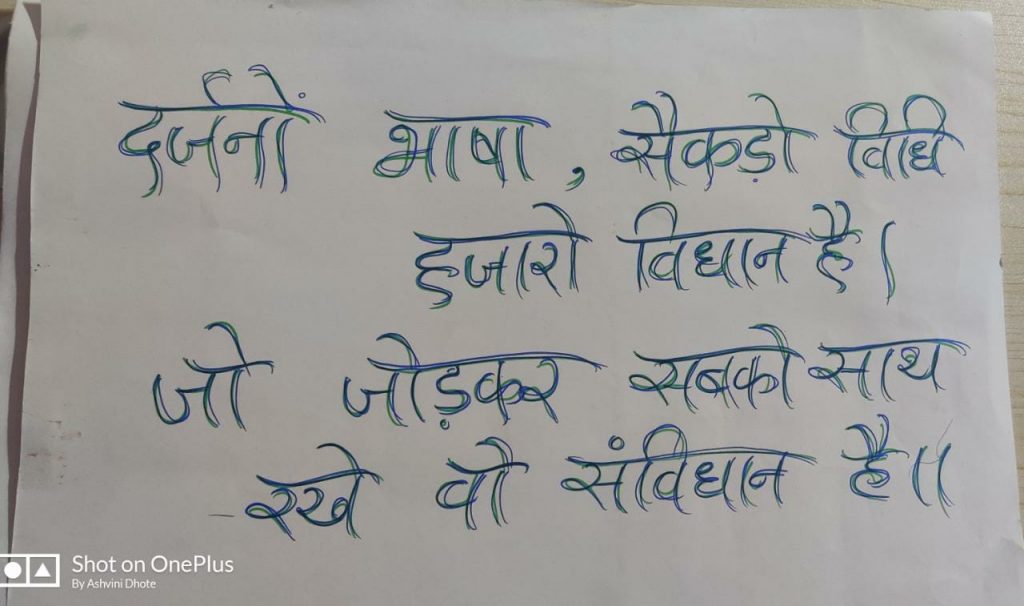 दर्जनों भाषा, सैकड़ो विधि
हजारो विधान है।
जो जोड़कर सबको साथ
रखे वो संविधान है॥
Shot on OnePlus
By Ashvini Dhote